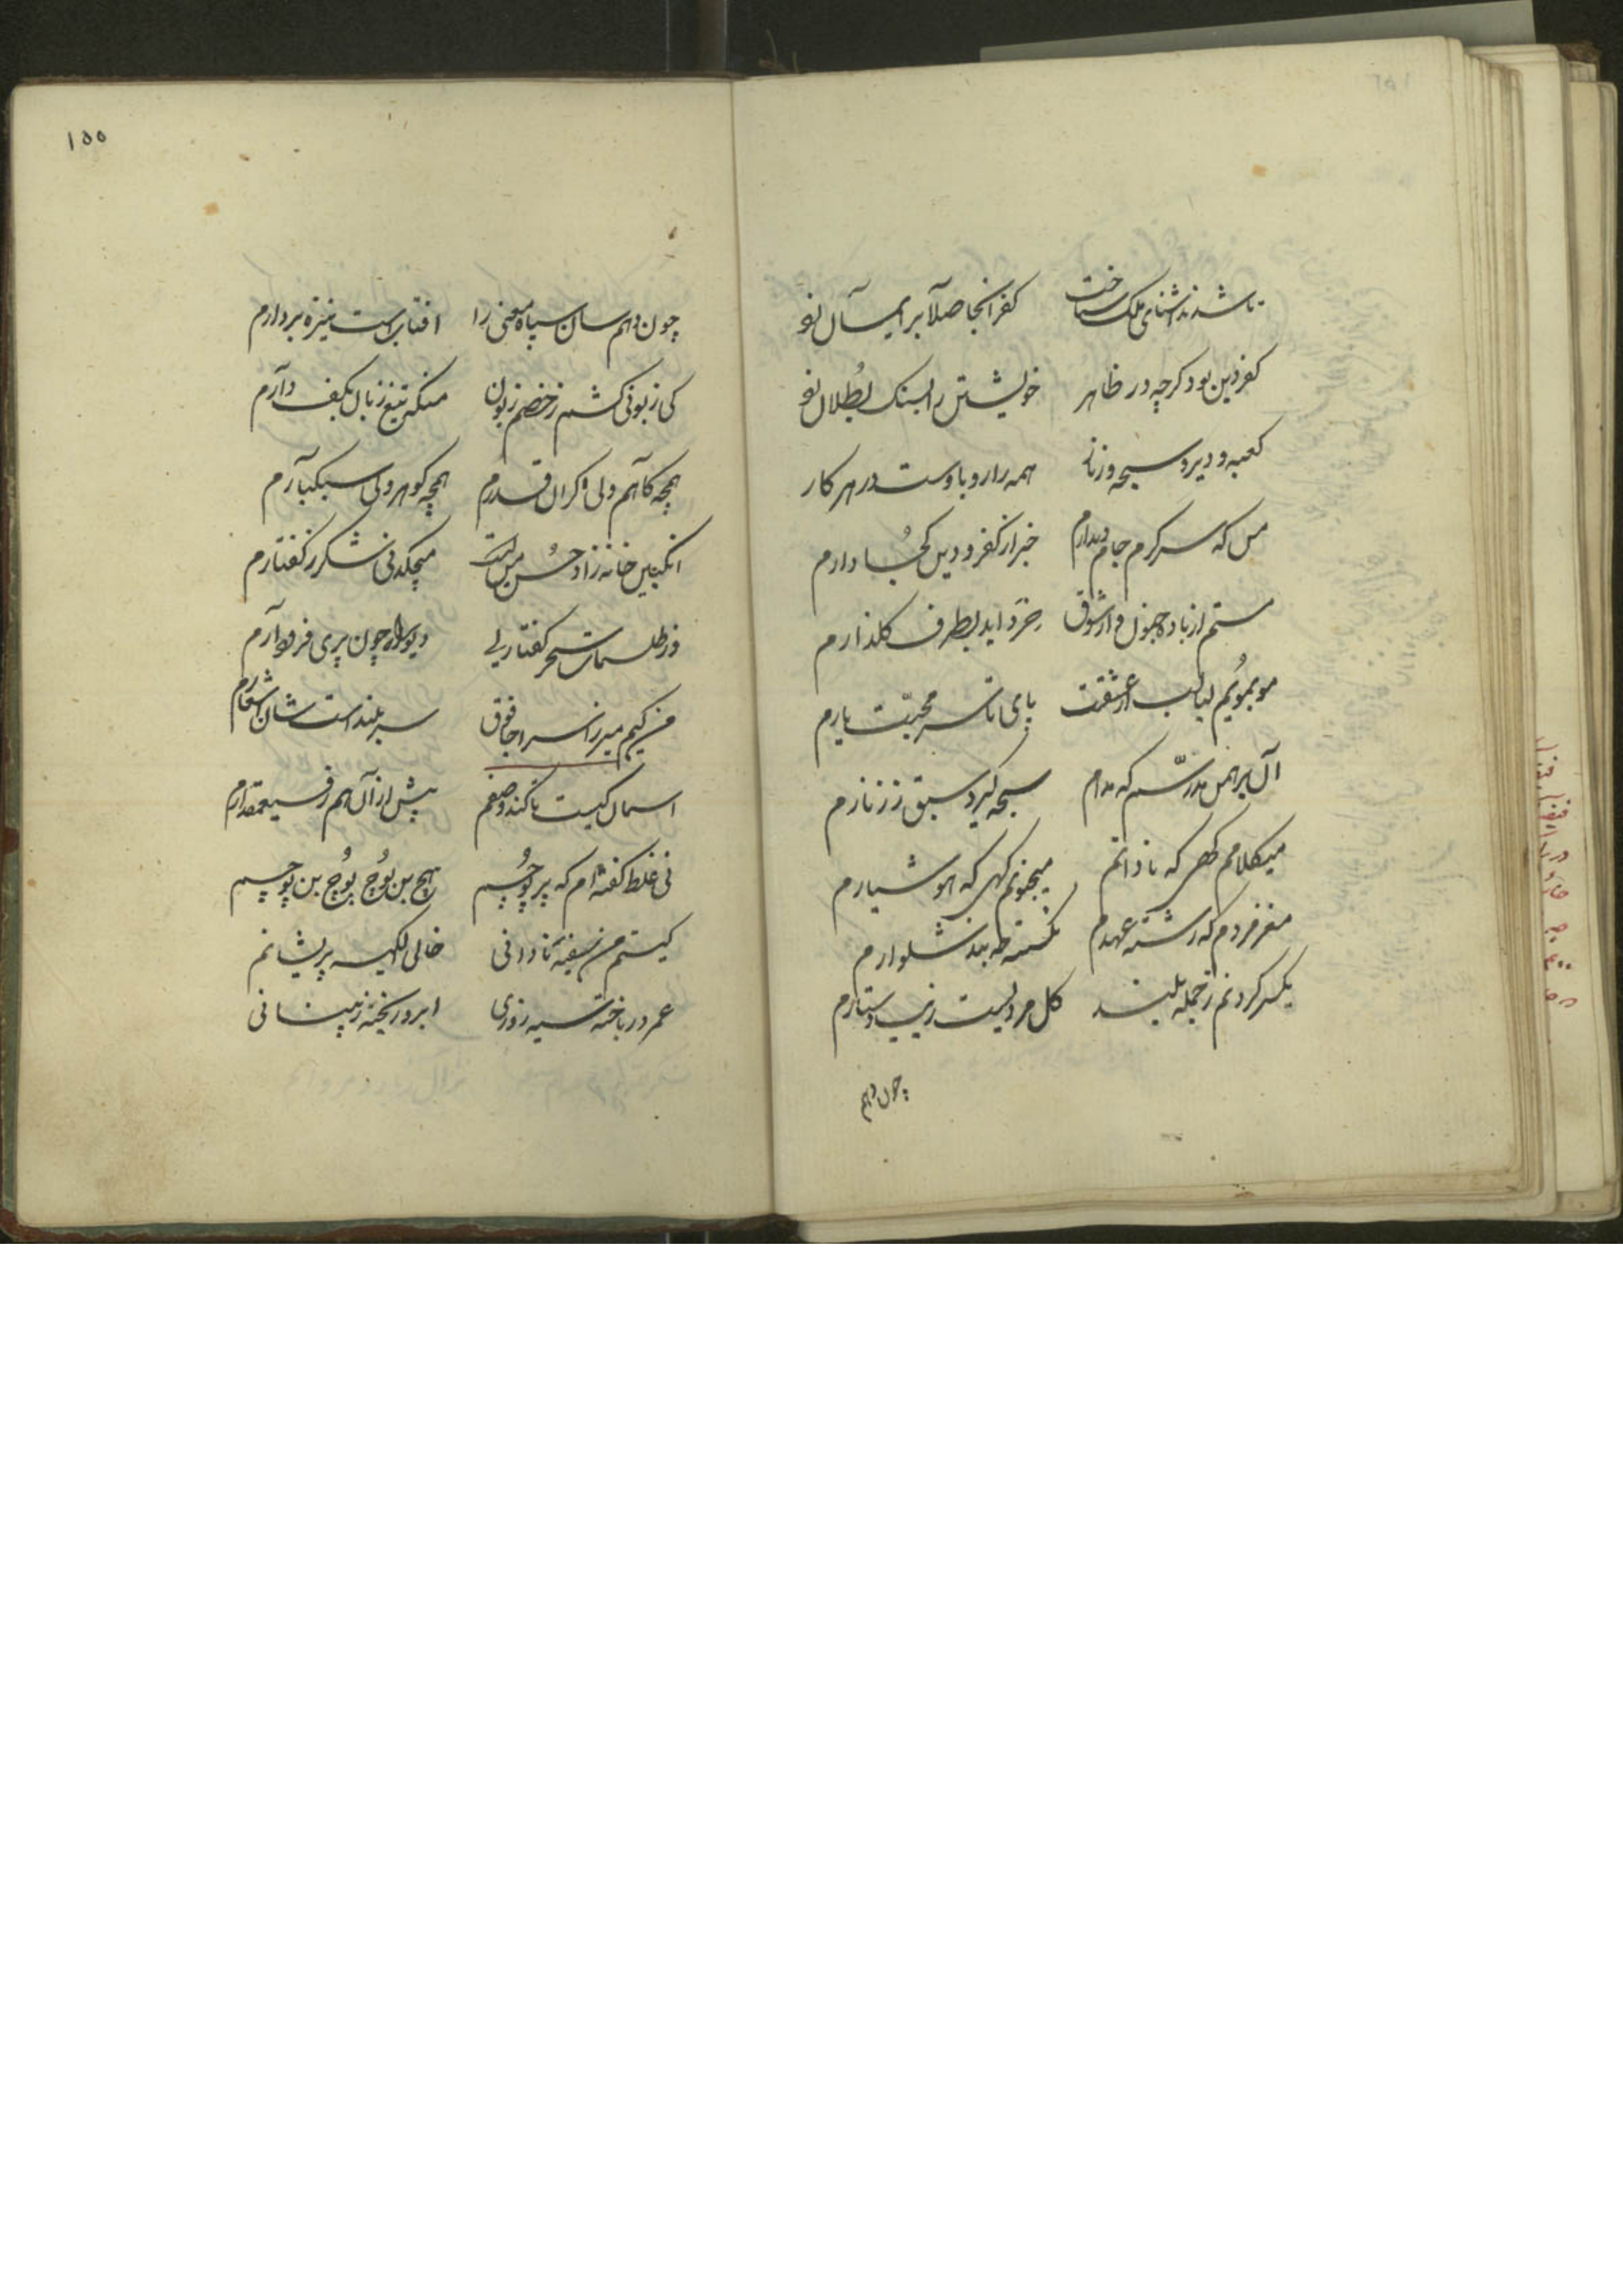 تا شدند آشنای ملک شناخت کفر آنجا صلا بر ایمان بو
کفر دین بود کرچه در ظاهر خویشتن را بسنک بطلان بو
کعبه و دیر و سبحه و زنار همه را رو باوست در هر کار
من که سرکرم جام دیدارم خبر از کفر و دین کجا دارم
مستم از باده جنون و از شوق خرد اید بطرف کلذارم
مو بمویم لبالب از عشقت پای تا سر محبت یارم
آن برهمن مدرسم که مدام سبحه کیرد سبق ز زنارم
میکلامم کهی که نادانم میجنونم کهی که هوشیارم
مغز فردم که رشته عهدم نکسته بند شلوارم
یکسر کردنم ز جمله بلند کل مردیست زیب دستارم
چون دهم
۱۵۵
چون دهم سان سپاه معنی را افتابست نیزه بردارم
کی زبونی کشم ز خصم زبون منکه تیغ زبان بکف دارم
همچو کاهم ولی کران قدرم همچو کوهر ولی سبکبارم
انکبین خانه زاد حسن منست میچکد نی شکر ز کفتارم
وز طلسمات سحر کفتاری دیو را چون پری فرود آرم
من کیم میرزا سراجافوق سر بلند است شان اشعارم
اسمان کیست تا کند وصفم بیش از آن هم رفیع مقدارم
نی غلط کفته ام که پر پوچم هیچ بن پوچ پوچ بن پوچم
کیستم من سفیه نادانی خالی از کیسه پریشانم
عمر درباخته سیه روزی ابرو ریخته ز پیشانی